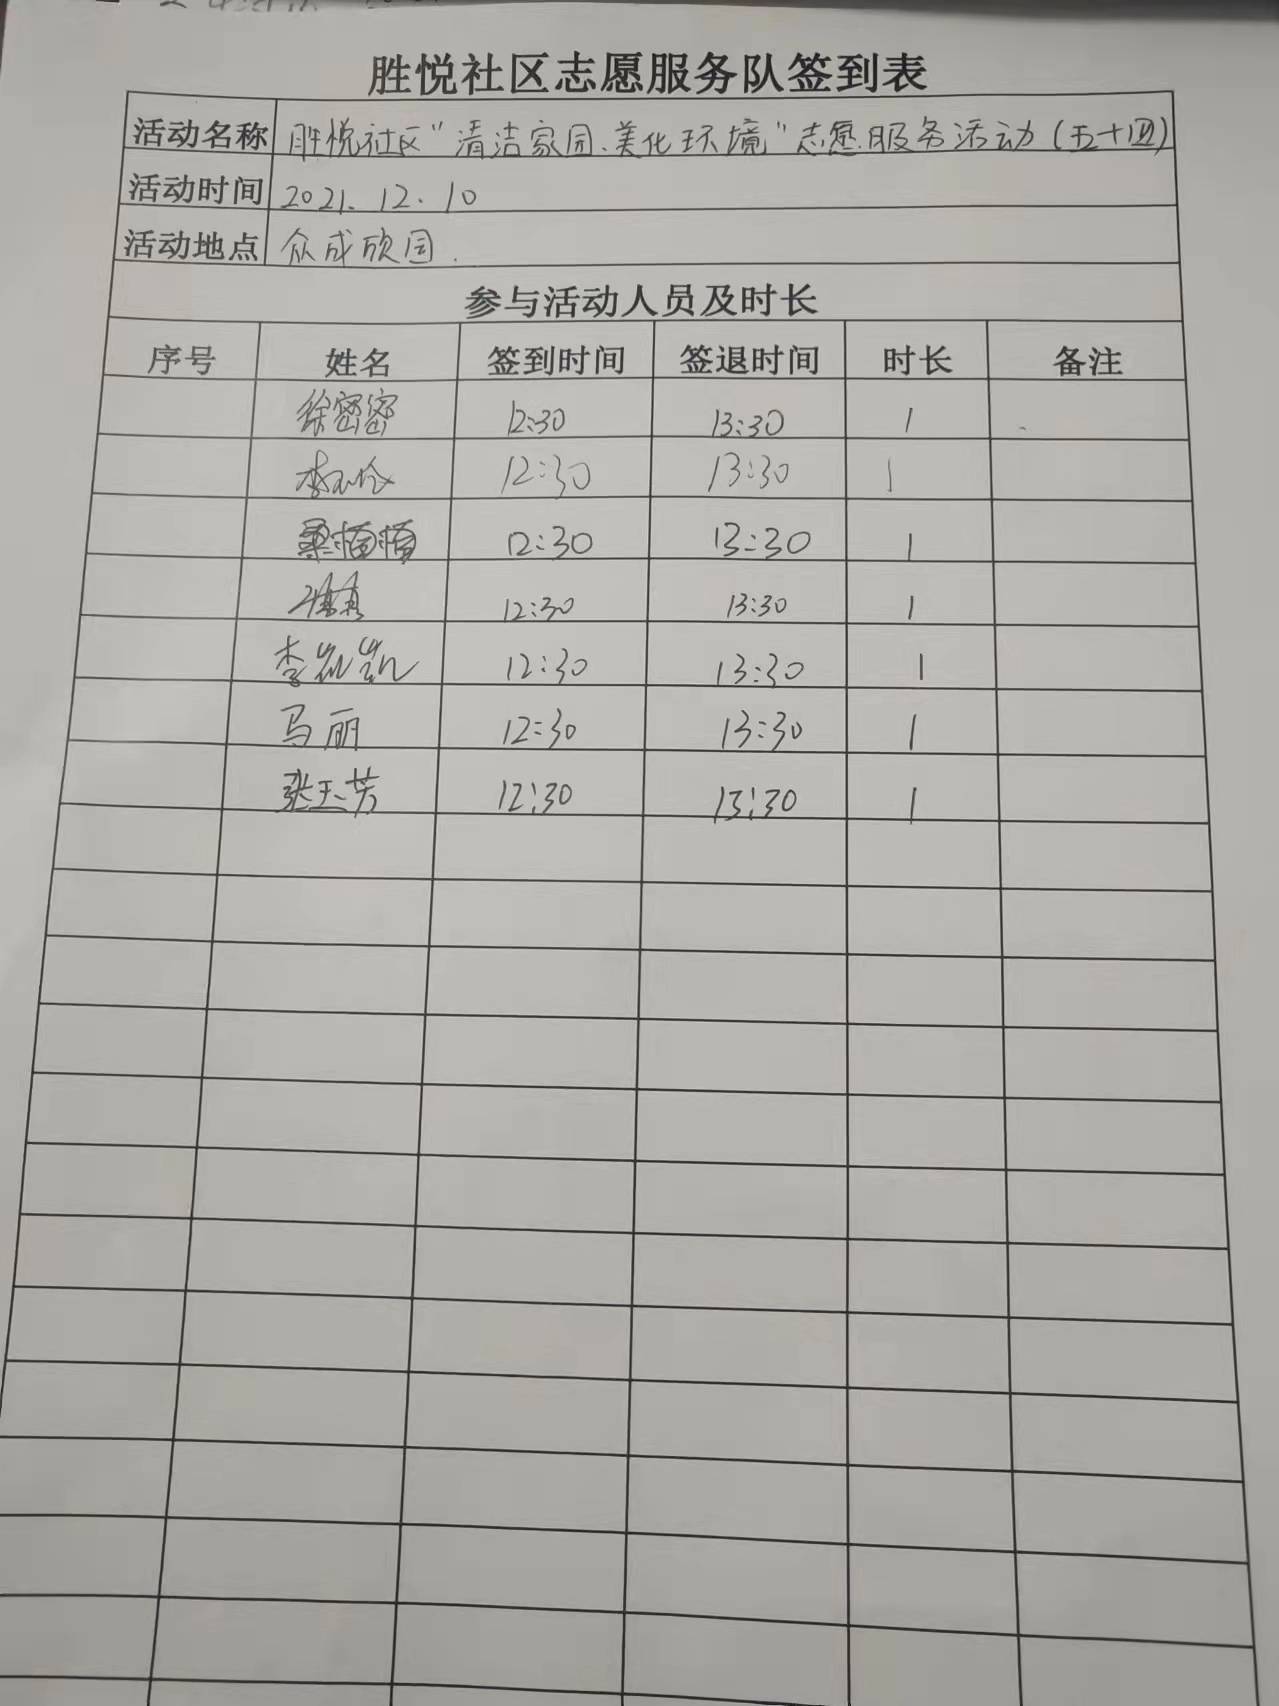 胜悦社区志愿服务队签到表
活动名称 胜悦社区"清洁家园、美化环境"志愿服务活动(五十四)
活动时间 2021.12.10
活动地点 众成欣园.
参与活动人员及时长
序号 姓名 签到时间 签退时间 时长 备注
徐密密 12:30 13:30 1
李 12:30 13:30 1
桑 12:30 13:30 1
12:30 13:30 1
李凯 12:30 13:30 1
马丽 12:30 13:30 1
张玉芳 12:30 13:30 1